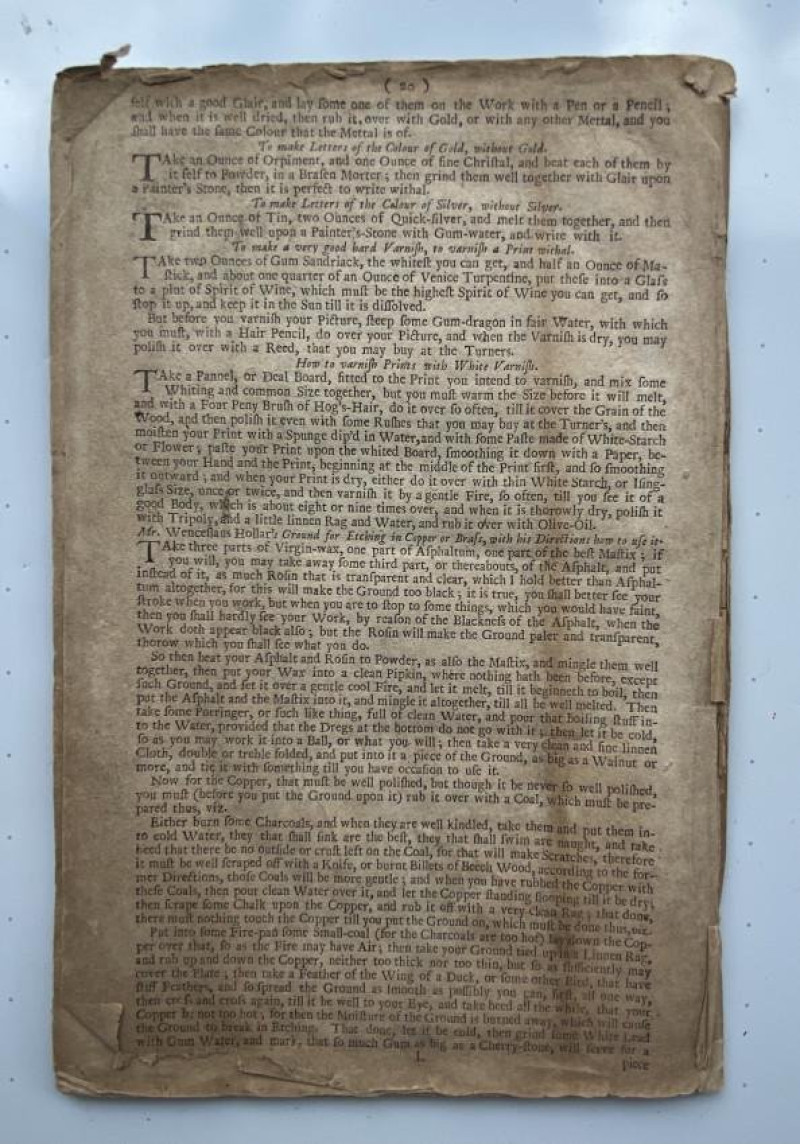 ( 20 )
ſelf with a good Glair, and lay ſome one of them on the Work with a Pen or a Pencil;
and when it is well dried, then rub it over with Gold, or with any other Mettal, and you
ſhall have the ſame Colour that the Mettal is of.
To make Letters of the Colour of Gold, without Gold.
TAke an Ounce of Orpiment, and one Ounce of fine Chriſtal, and beat each of them by
it ſelf to Powder, in a Braſen Morter; then grind them well together with Glair upon
a Painter's Stone, then it is perfect to write withal.
To make Letters of the Colour of Silver, without Silver.
TAke an Ounce of Tin, two Ounces of Quick-ſilver, and melt them together, and then
grind them well upon a Painter's-Stone with Gum-water, and write with it.
To make a very good hard Varniſh, to varniſh a Print withal.
TAke two Ounces of Gum Sandriack, the whiteſt you can get, and half an Ounce of Ma-
ſtick, and about one quarter of an Ounce of Venice Turpentine, put theſe into a Glaſs
to a pint of Spirit of Wine, which muſt be the higheſt Spirit of Wine you can get, and ſo
ſtop it up, and keep it in the Sun till it is diſſolved.
But before you varniſh your Picture, ſteep ſome Gum-dragon in fair Water, with which
you muſt, with a Hair Pencil, do over your Picture, and when the Varniſh is dry, you may
poliſh it over with a Reed, that you may buy at the Turners.
How to varniſh Prints with White Varniſh.
TAke a Pannel, or Deal Board, fitted to the Print you intend to varniſh, and mix ſome
Whiting and common Size together, but you muſt warm the Size before it will melt,
and with a Four Peny Bruſh of Hog's-Hair, do it over ſo often, till it cover the Grain of the
Wood, and then poliſh it even with ſome Ruſhes that you may buy at the Turner's, and then
moiſten your Print with a Spunge dip'd in Water, and with ſome Paſte made of White-Starch
or Flower; paſte your Print upon the whited Board, ſmoothing it down with a Paper, be-
tween your Hand and the Print, beginning at the middle of the Print firſt, and ſo ſmoothing
it outward; and when your Print is dry, either do it over with thin White Starch, or Iſing-
glaſs Size, once or twice, and then varniſh it by a gentle Fire, ſo often, till you ſee it of a
good Body, which is about eight or nine times over, and when it is thorowly dry, poliſh it
with Tripoly, and a little linnen Rag and Water, and rub it over with Olive-Oil.
Mr. Wenceſlaus Hollar's Ground for Etching in Copper or Braſs, with his Directions how to uſe it.
TAke three parts of Virgin-wax, one part of Aſphaltum, one part of the beſt Maſtix; if
you will, you may take away ſome third part, or thereabouts, of the Aſphalt, and put
inſtead of it, as much Roſin that is tranſparent and clear, which I hold better than Aſphal-
tum altogether, for this will make the Ground too black; it is true, you ſhall better ſee your
ſtroke when you work, but when you are to ſtop to ſome things, which you would have faint,
then you ſhall hardly ſee your Work, by reaſon of the Blackneſs of the Aſphalt, when the
Work doth appear black alſo; but the Roſin will make the Ground paler and tranſparent,
thorow which you ſhall ſee what you do.
So then beat your Aſphalt and Roſin to Powder, as alſo the Maſtix, and mingle them well
together, then put your Wax into a clean Pipkin, where nothing hath been before, except
ſuch Ground, and ſet it over a gentle cool Fire, and let it melt, till it beginneth to boil, then
put the Aſphalt and the Maſtix into it, and mingle it altogether, till all be well melted. Then
take ſome Porringer, or ſuch like thing, full of clean Water, and pour that boiling ſtuff in-
to the Water, provided that the Dregs at the bottom do not go with it; then let it be cold,
ſo as you may work it into a Ball, or what you will; then take a very clean and fine linnen
Cloth, double or treble folded, and put into it a piece of the Ground, as big as a Walnut or
more, and tie it with ſomething till you have occaſion to uſe it.
Now for the Copper, that muſt be well poliſhed, but though it be never ſo well poliſhed,
you muſt (before you put the Ground upon it) rub it over with a Coal, which muſt be pre-
pared thus, viz.
Either burn ſome Charcoals, and when they are well kindled, take them and put them in-
to cold Water, they that ſhall ſink are the beſt, they that ſhall ſwim are naught, and take
heed that there be no outſide or cruſt left on the Coal, for that will make Scratches, therefore
it muſt be well ſcraped off with a Knife, or burnt Billets of Beech Wood, according to the for-
mer Directions, thoſe Coals will be more gentle; and when you have rubbed the Copper with
theſe Coals, then pour clean Water over it, and let the Copper ſtanding ſlooping till it be dry;
then ſcrape ſome Chalk upon the Copper, and rub it off with a very clean Rag; that done,
there muſt nothing touch the Copper till you put the Ground on, which muſt be done thus, viz.
Put into ſome Fire-pan ſome Small-coal (for the Charcoals are too hot) lay down the Cop-
per over that, ſo as the Fire may have Air; then take your Ground tied up in a Linnen Rag,
and rub up and down the Copper, neither too thick nor too thin, but ſo as ſufficiently may
cover the Plate; then take a Feather of the Wing of a Duck, or ſome other Bird, that have
ſtiff Feathers, and ſo ſpread the Ground as ſmooth as poſſibly you can, firſt, all one way,
then croſs and croſs again, till it be well to your Eye, and take heed all the while, that your
Copper be not too hot, for then the Moiſture of the Ground is burned away, which will cauſe
the Ground to break in Etching. That done, let it be cold, then grind ſome White Lead
with Gum Water, and mark, that ſo much Gum as big as a Cherry-ſtone, will ſerve for a
L
piece